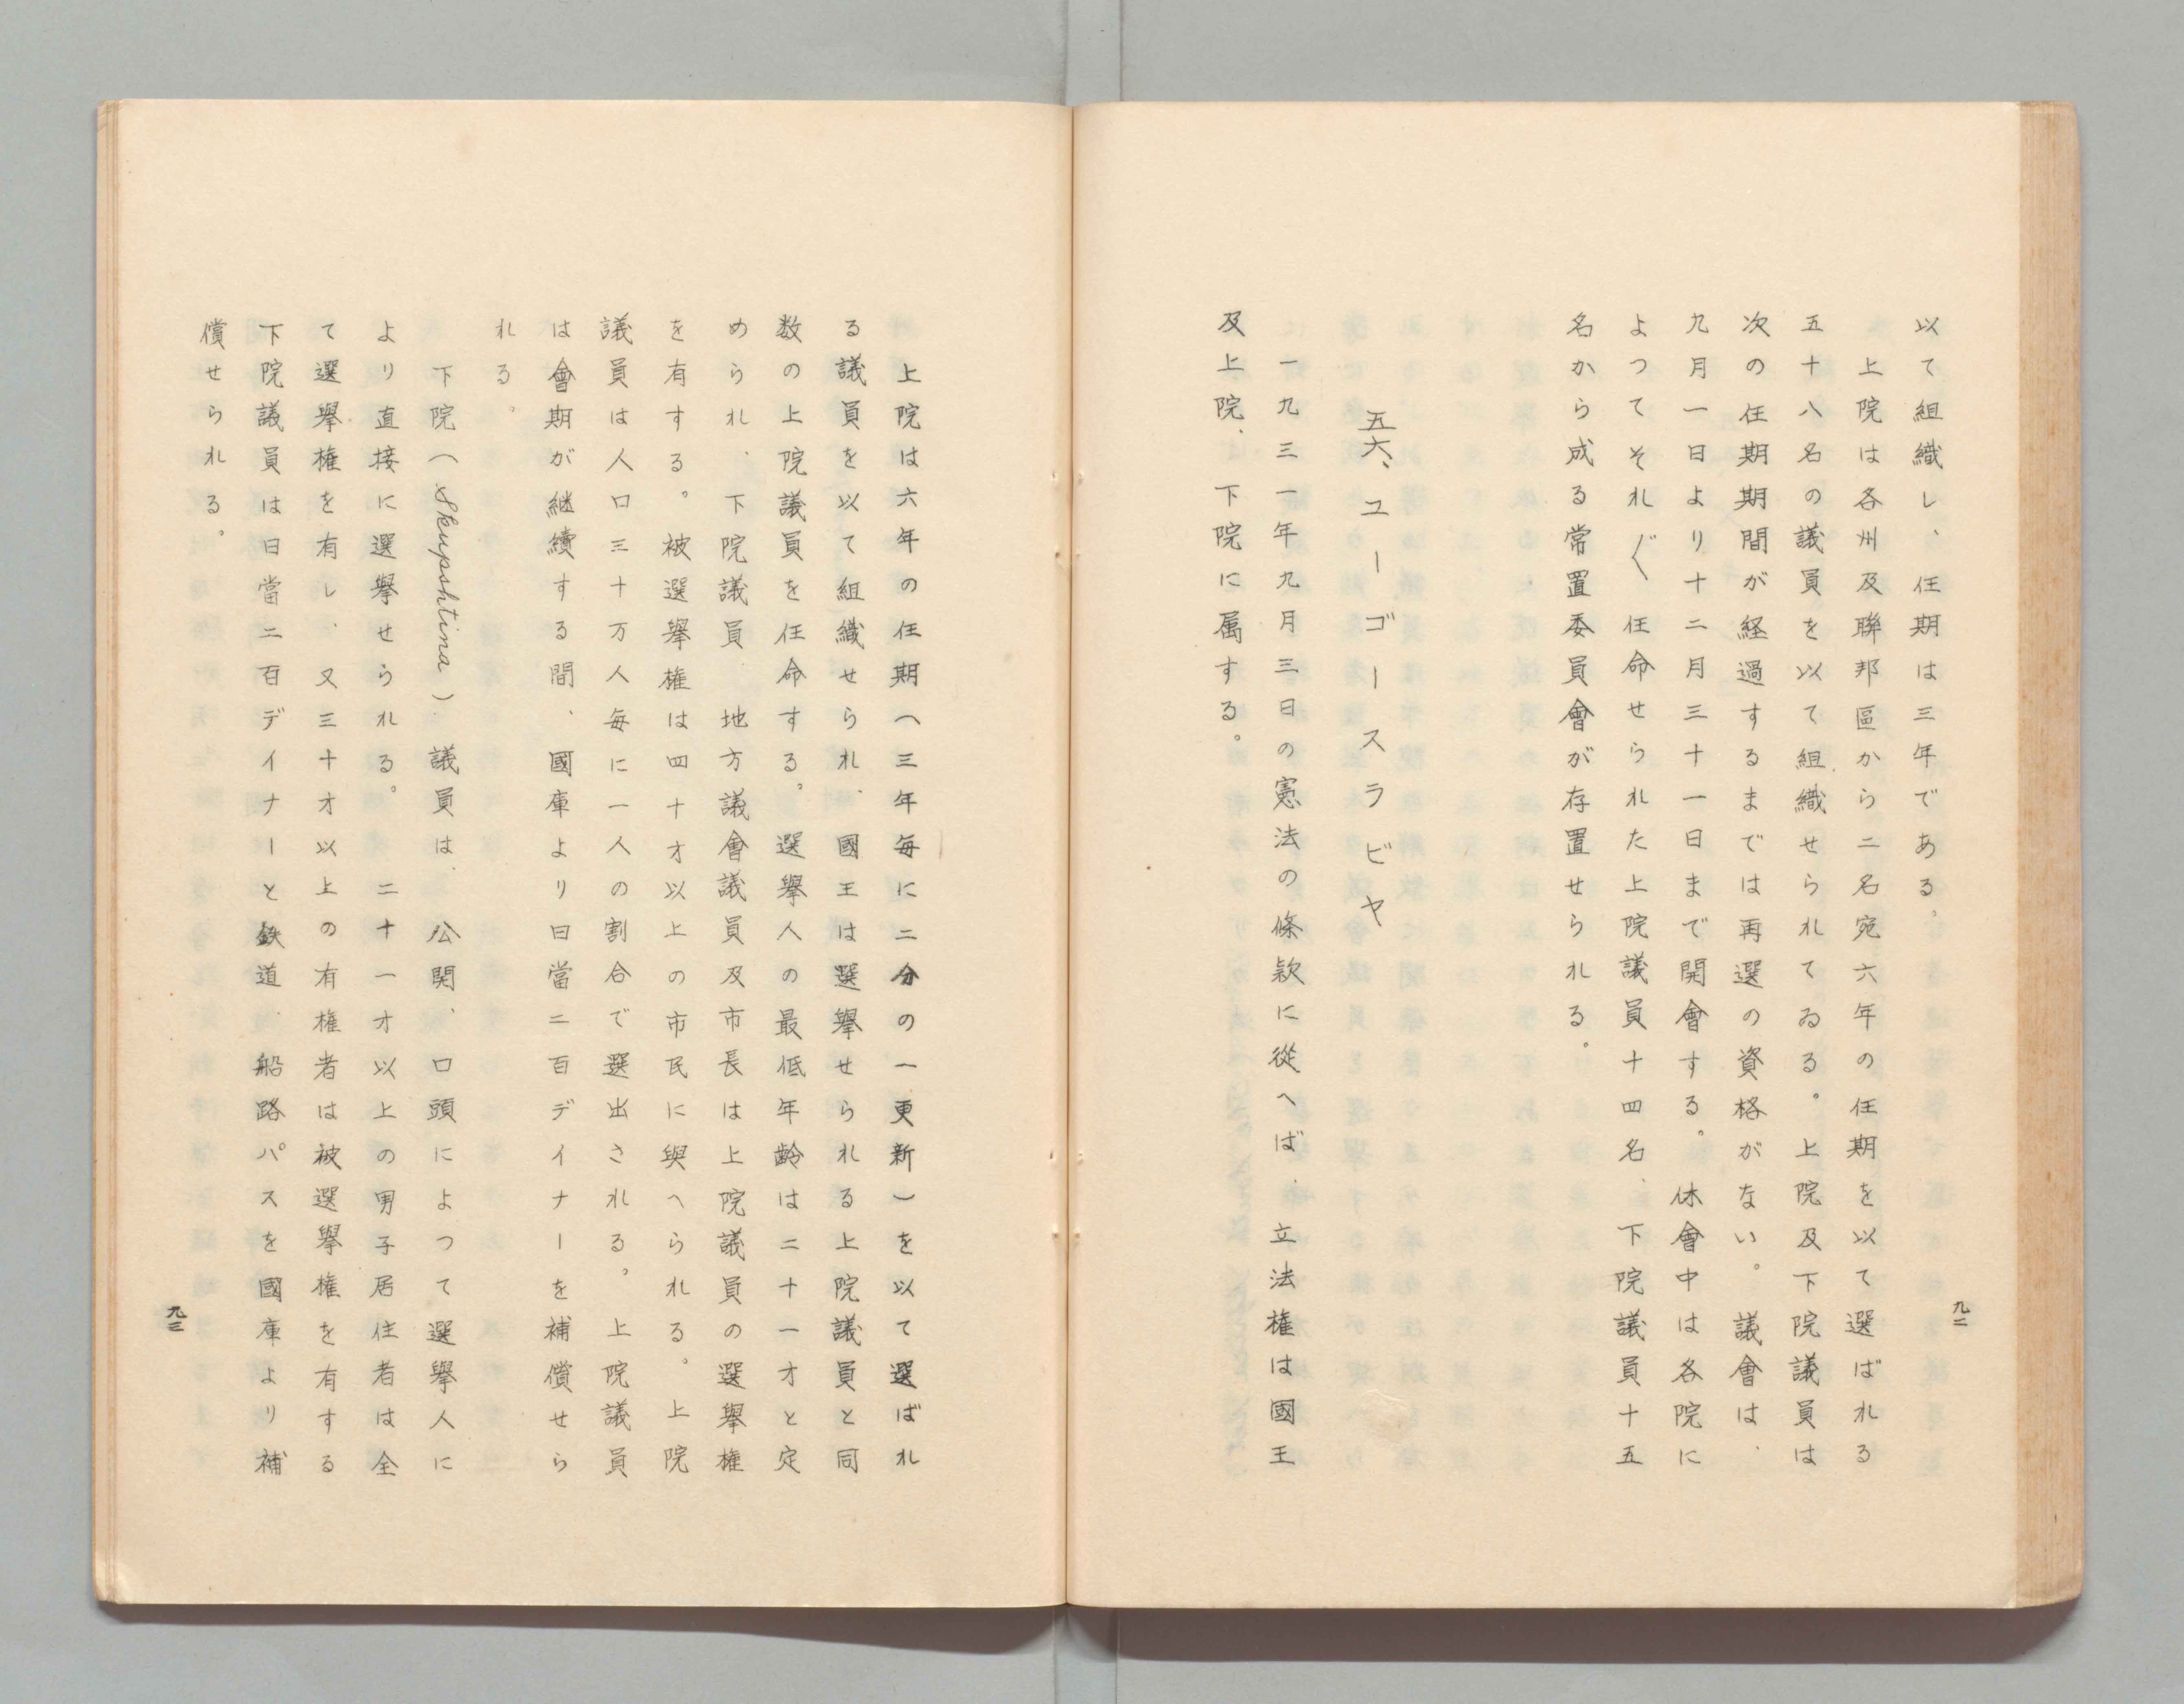 以て組織し、任期は三年である。
上院は各州及聯邦區から二名宛六年の任期を以て選ばれる
五十八名の議員を以て組織せられてゐる。上院及下院議員は
次の任期期間が経過するまでは再選の資格がない。議會は、
九月一日より十二月三十一日まで開會する。休會中は各院に
よつてそれ〴〵任命せられた上院議員十四名、下院議員十五
名から成る常置委員會が存置せられる。
五六、ユーゴースラビヤ
一九三一年九月三日の憲法の條款に從へば、立法権は國王
及上院、下院に属する。
九二
上院は六年の任期（三年毎に二分の一更新）を以て選ばれ
る議員を以て組織せられ、國王は選擧せられる上院議員と同
数の上院議員を任命する。選擧人の最低年齡は二十一才と定
められ、下院議員　地方議會議員及市長は上院議員の選擧権
を有する。被選擧権は四十才以上の市民に與へられる。上院
議員は人口三十万人毎に一人の割合で選出される。上院議員
は會期が継續する間、國庫より日當二百デイナーを補償せら
れる。
下院（Skupshtina）議員は、公開、口頭によつて選擧人に
より直接に選擧せられる。二十一才以上の男子居住者は全
て選擧権を有し、又三十才以上の有権者は被選擧権を有する
下院議員は日當二百デイナーと鉄道、船路パスを國庫より補
償せられる。
九三